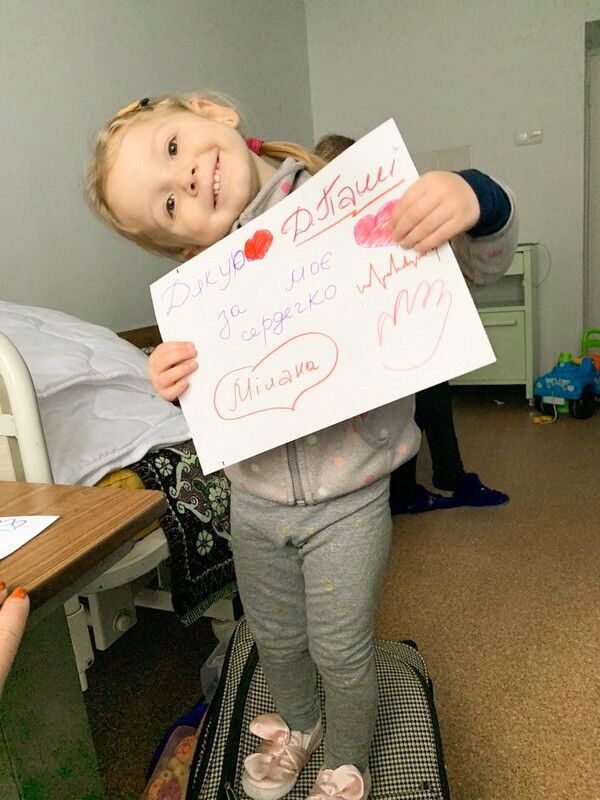 Дякую Д.Паші
за моє
сердечко
Мілана